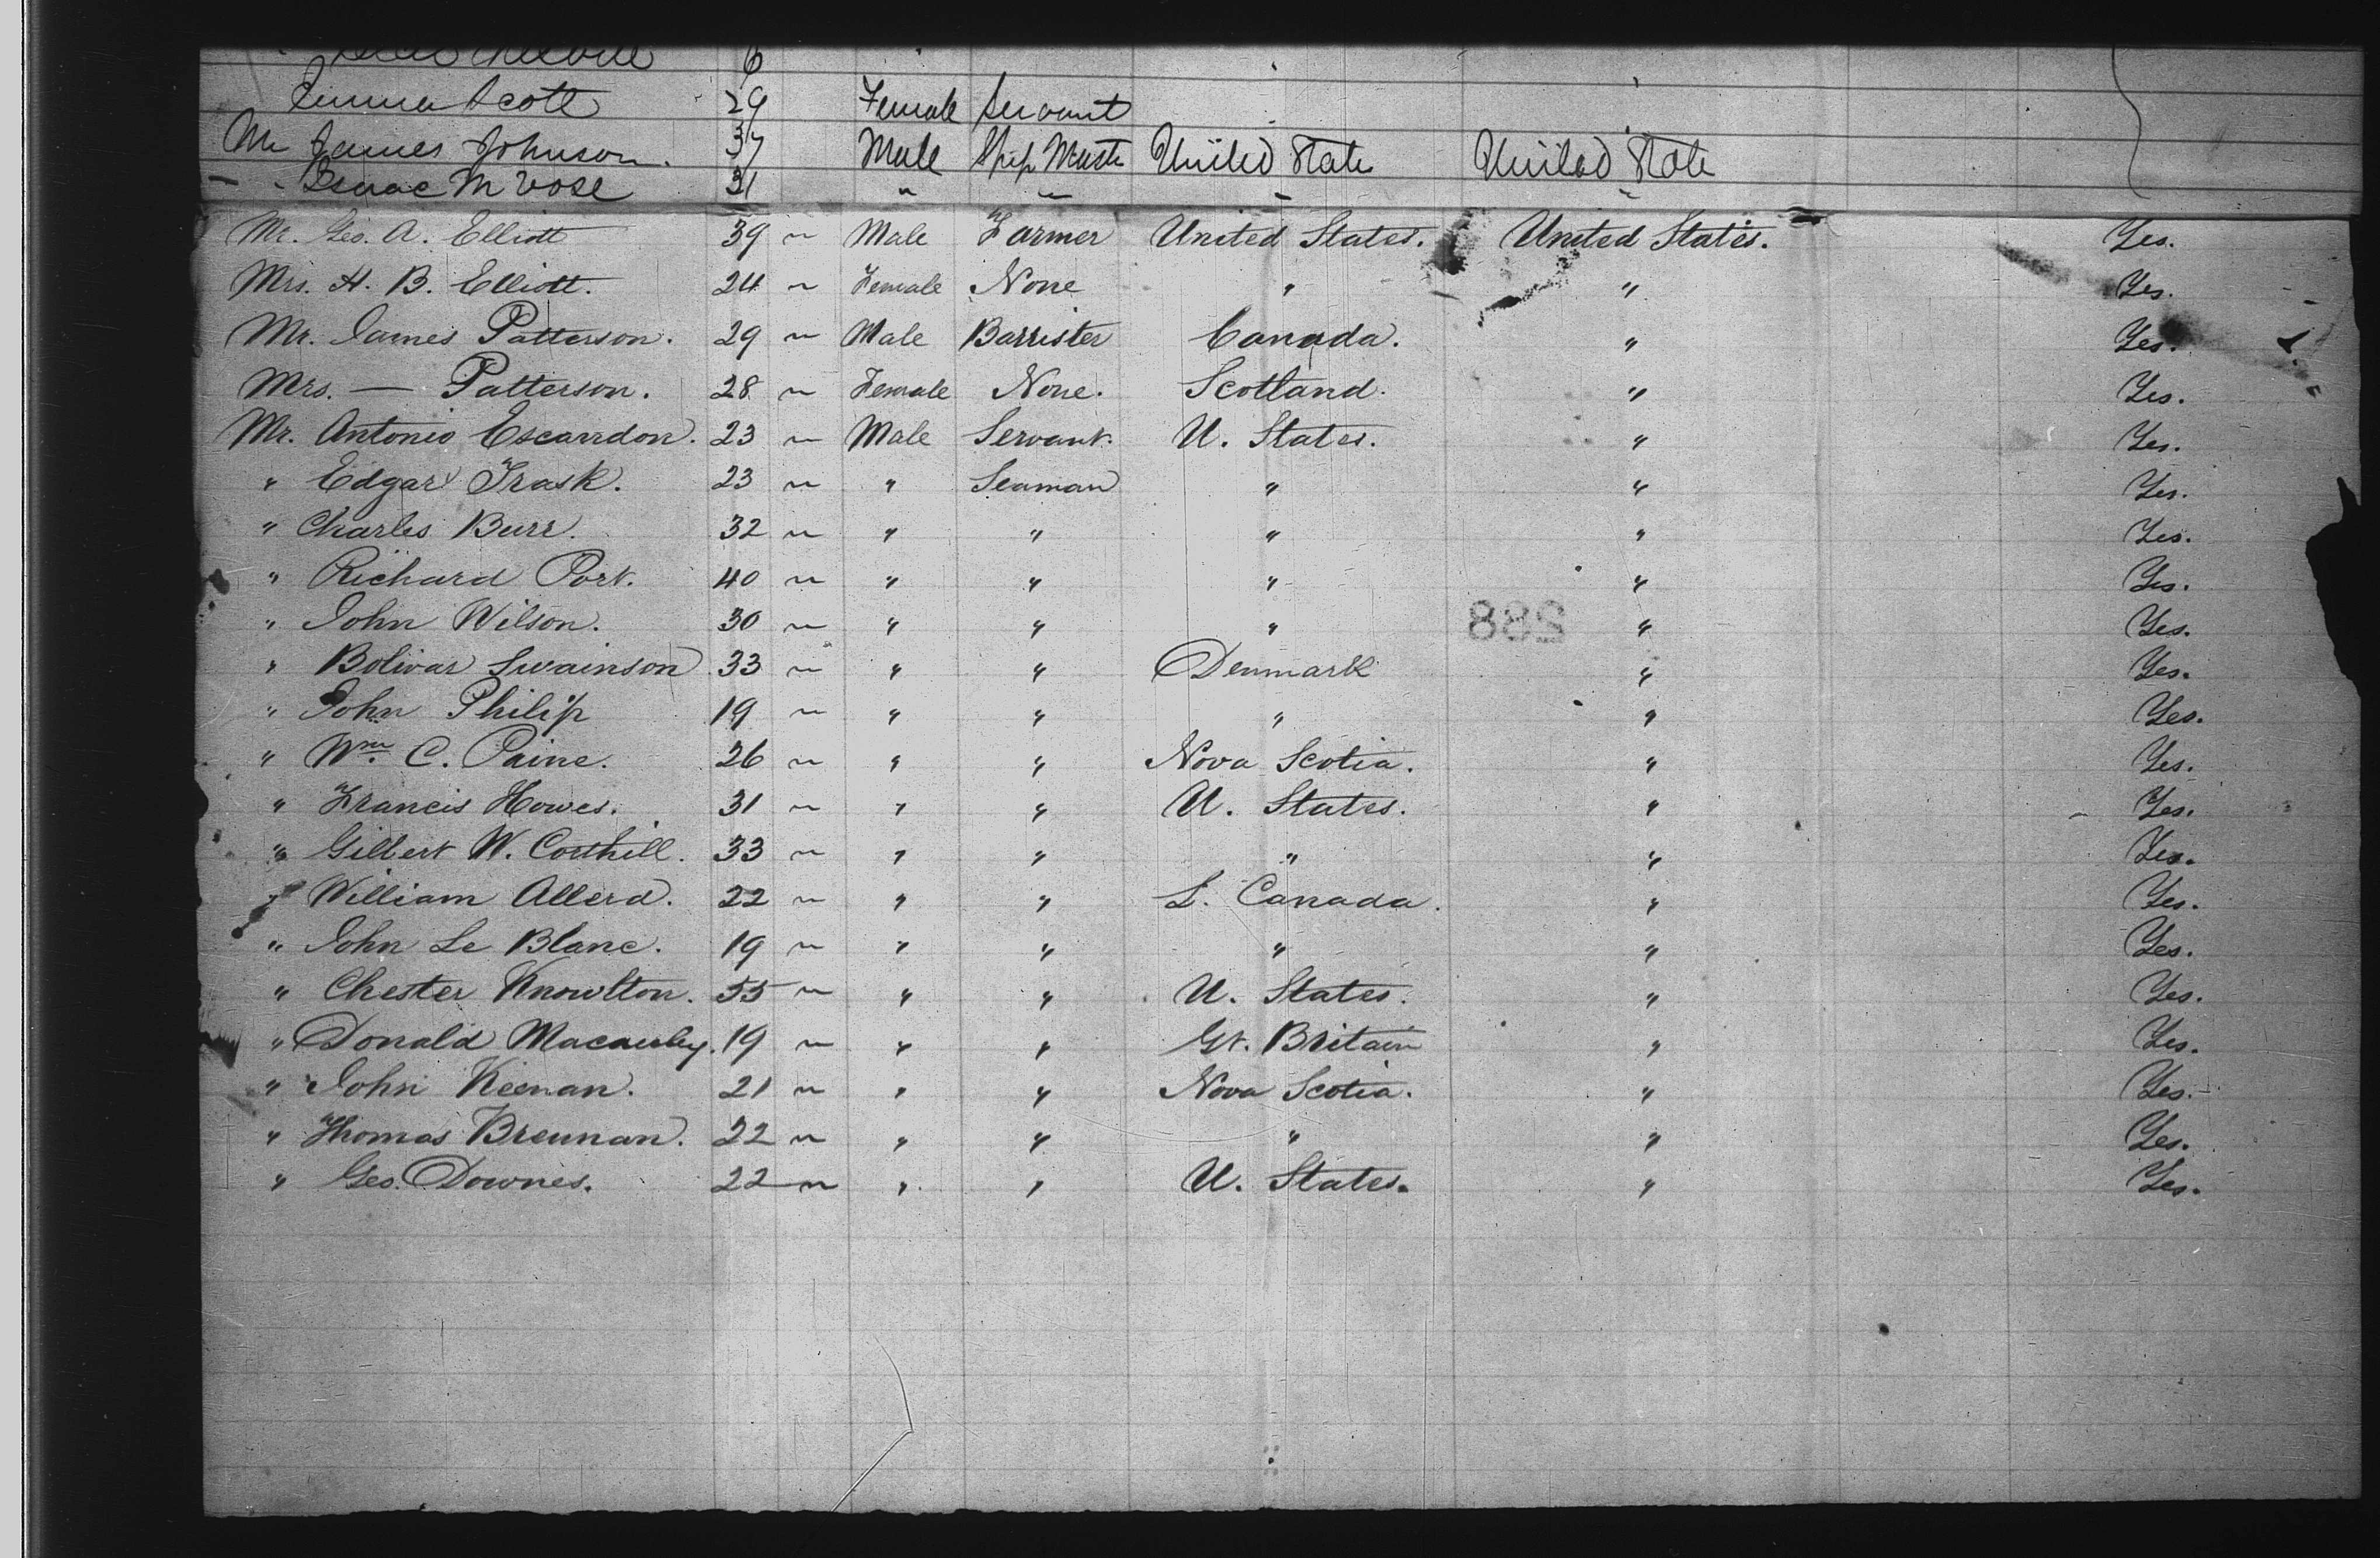 6
Emma Scott 29 Female Servant
Mr James Johnson. 37 Male Ship Mastr United State United State
" " Isaac M Vose 31 " " " "
Mr. Geo. A. Elliott 39 " Male Farmer United States. United States. Yes.
Mrs. H. B. Elliott. 24 " Female None " " Yes.
Mr. James Patterson. 29 " Male Barrister Canada. " Yes.
Mrs. — Patterson. 28 " Female None. Scotland. " Yes.
Mr. Antonio Escarrdon. 23 " Male Servant. U. States. " Yes.
" Edgar Trask. 23 " " Seaman " " Yes.
" Charles Burr. 32 " " " " " Yes.
" Richard Port. 40 " " " " " Yes.
" John Wilson. 30 " " " " 288 " Yes.
" Bolivar Swainson 33 " " " Denmark " Yes.
" John Philip 19 " " " " " Yes.
" Wm. C. Paine. 26 " " " Nova Scotia. " Yes.
" Francis Howes. 31 " " " U. States. " Yes.
" Gilbert W. Corthill. 33 " " " " " Yes.
" William Allerd. 22 " " " L. Canada. " Yes.
" John Le Blanc. 19 " " " " " Yes.
" Chester Knowlton. 55 " " " U. States. " Yes.
" Donald Macauley. 19 " " " Gt. Britain " Yes.
" John Keenan. 21 " " " Nova Scotia. " Yes.
" Thomas Brennan. 22 " " " " " Yes.
" Geo. Downes. 22 " " " U. States. " Yes.